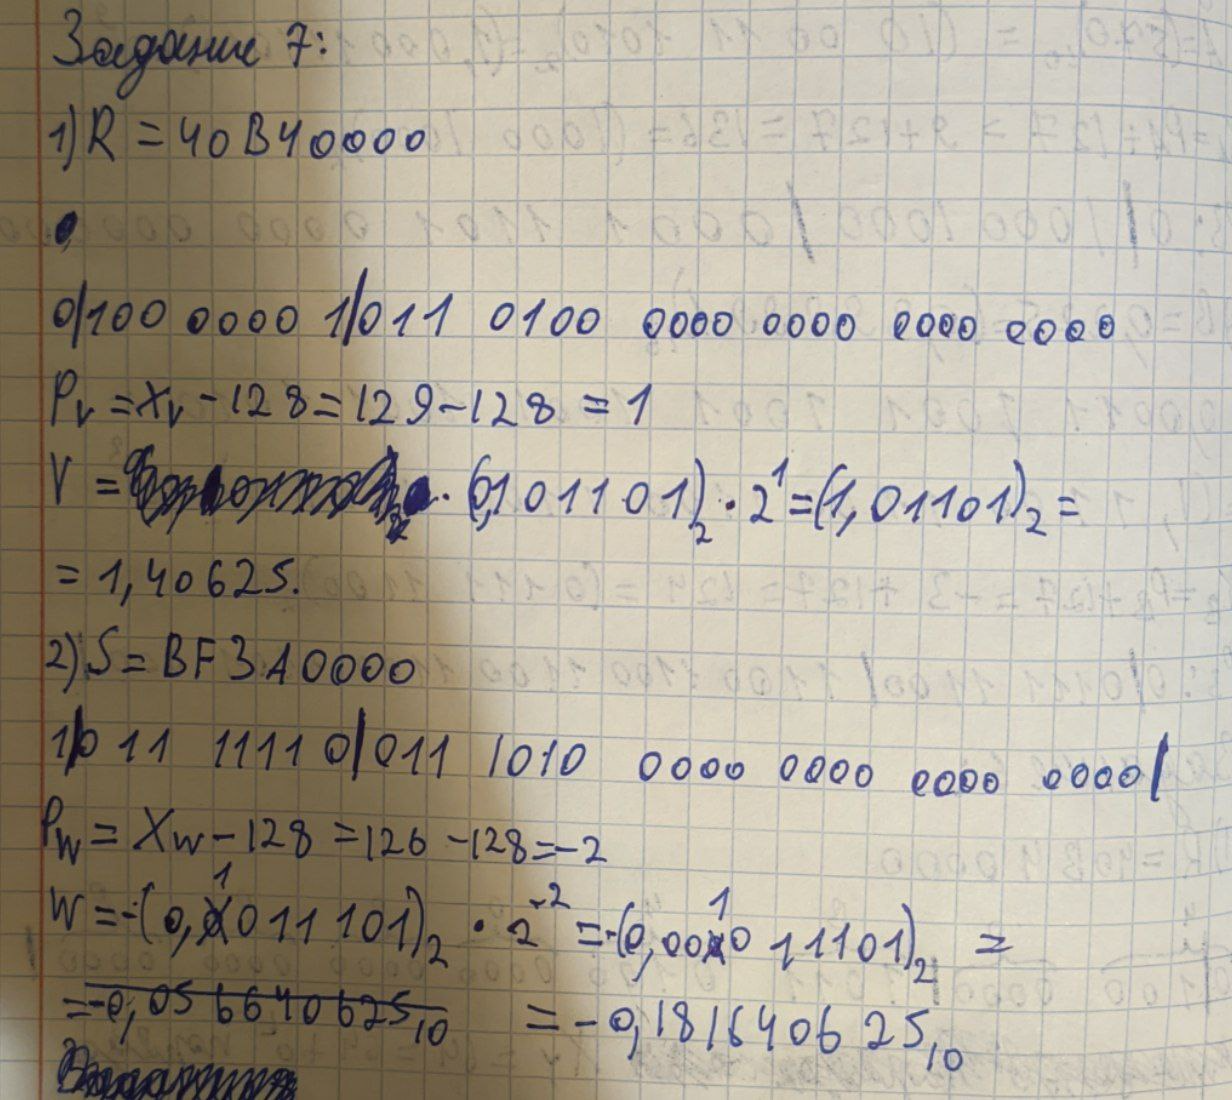 Задание 7:
1) R = 40B40000
0|100 0000 1|011 0100 0000 0000 0000 0000
Pv = Xv - 128 = 129 - 128 = 1
V = · (0,101101)₂ · 2¹ = (1,01101)₂ =
= 1,40625.
2) S = BF3A0000
1|011 1111 0|011 1010 0000 0000 0000 0000|
Pw = Xw - 128 = 126 - 128 = -2
W = -(0,1011101)₂ · 2⁻² = -(0,0010 11101)₂ =
= -0,0566640625₁₀ = -0,181640625₁₀